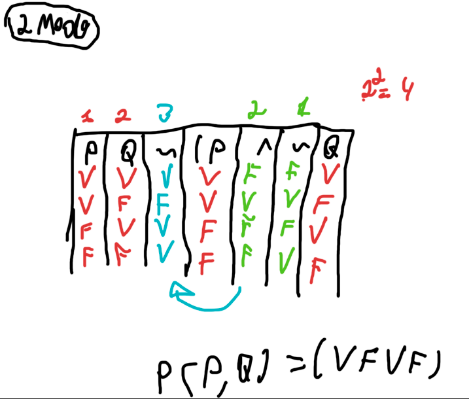 2 Modo
2²= 4
1 2 3 2 1
P Q ~ (P ^ ~ Q
V V V V F F V
V F F V V V F
F V V F F F V
F F V F F V F
P(P,Q) = (VFVF)